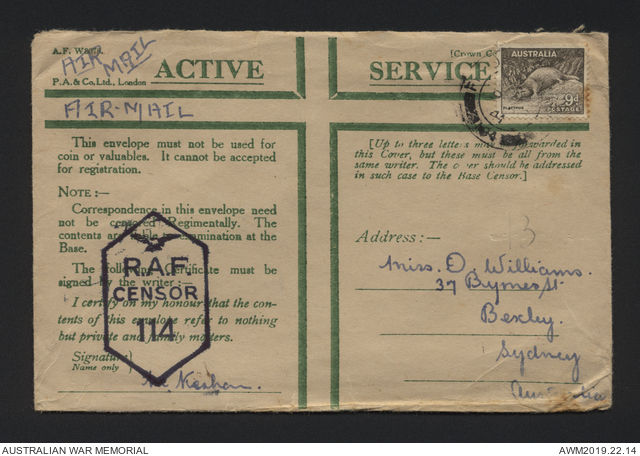 A.F.
P.A. & Co, Ltd., London
AIR MAIL
ACTIVE SERVICE
[Crown
AIR-MAIL
AUSTRALIA
PLATYPUS
9d
POSTAGE
This envelope must not be used for
coin or valuables. It cannot be accepted
for registration.
NOTE :—
Correspondence in this envelope need
not be censored Regimentally. The
contents are liable to examination at the
Base.
The following Certificate must be
signed by the writer :—
I certify on my honour that the con-
tents of this envelope refer to nothing
but private and family matters.
Signature
Name only
Keehan.
R.A.F.
CENSOR
114
[Up to three letters may be forwarded in
this Cover, but these must be all from the
same writer. The cover should be addressed
in such case to the Base Censor.]
3
Address :—
Miss. D. Williams.
37 Byrnes St
Bexley.
Sydney
Australia
AUSTRALIAN WAR MEMORIAL
AWM2019.22.14